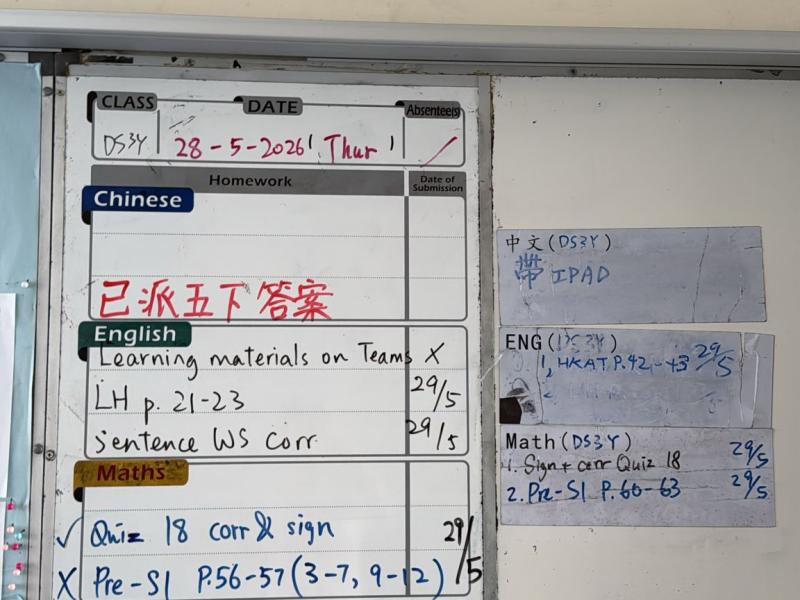 CLASS DATE Absentee(s)
DS3Y 28-5-2026 (Thur)
Homework Date of Submission
Chinese
已派五下答案
English
Learning materials on Teams X
LH p. 21-23 29/5
Sentence WS corr 29/5
Maths
✓ Quiz 18 corr & sign 29/5
X Pre-S1 P.56-57 (3-7, 9-12)
中文(DS3Y)
帶 IPAD
ENG(DS3Y)
1, HKAT P.42-43 29/5
2
Math(DS3Y)
1. Sign + corr Quiz 18 29/5
2. Pre-S1 P.60-63 29/5